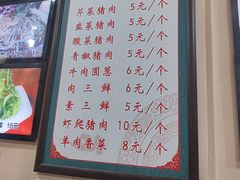 芹菜猪肉 5元/个
韭菜猪肉 5元/个
酸菜猪肉 5元/个
青椒猪肉 5元/个
牛肉圆葱 6元/个
肉三鲜 6元/个
素三鲜 5元/个
虾爬猪肉 10元/个
羊肉香菜 8元/个
16元